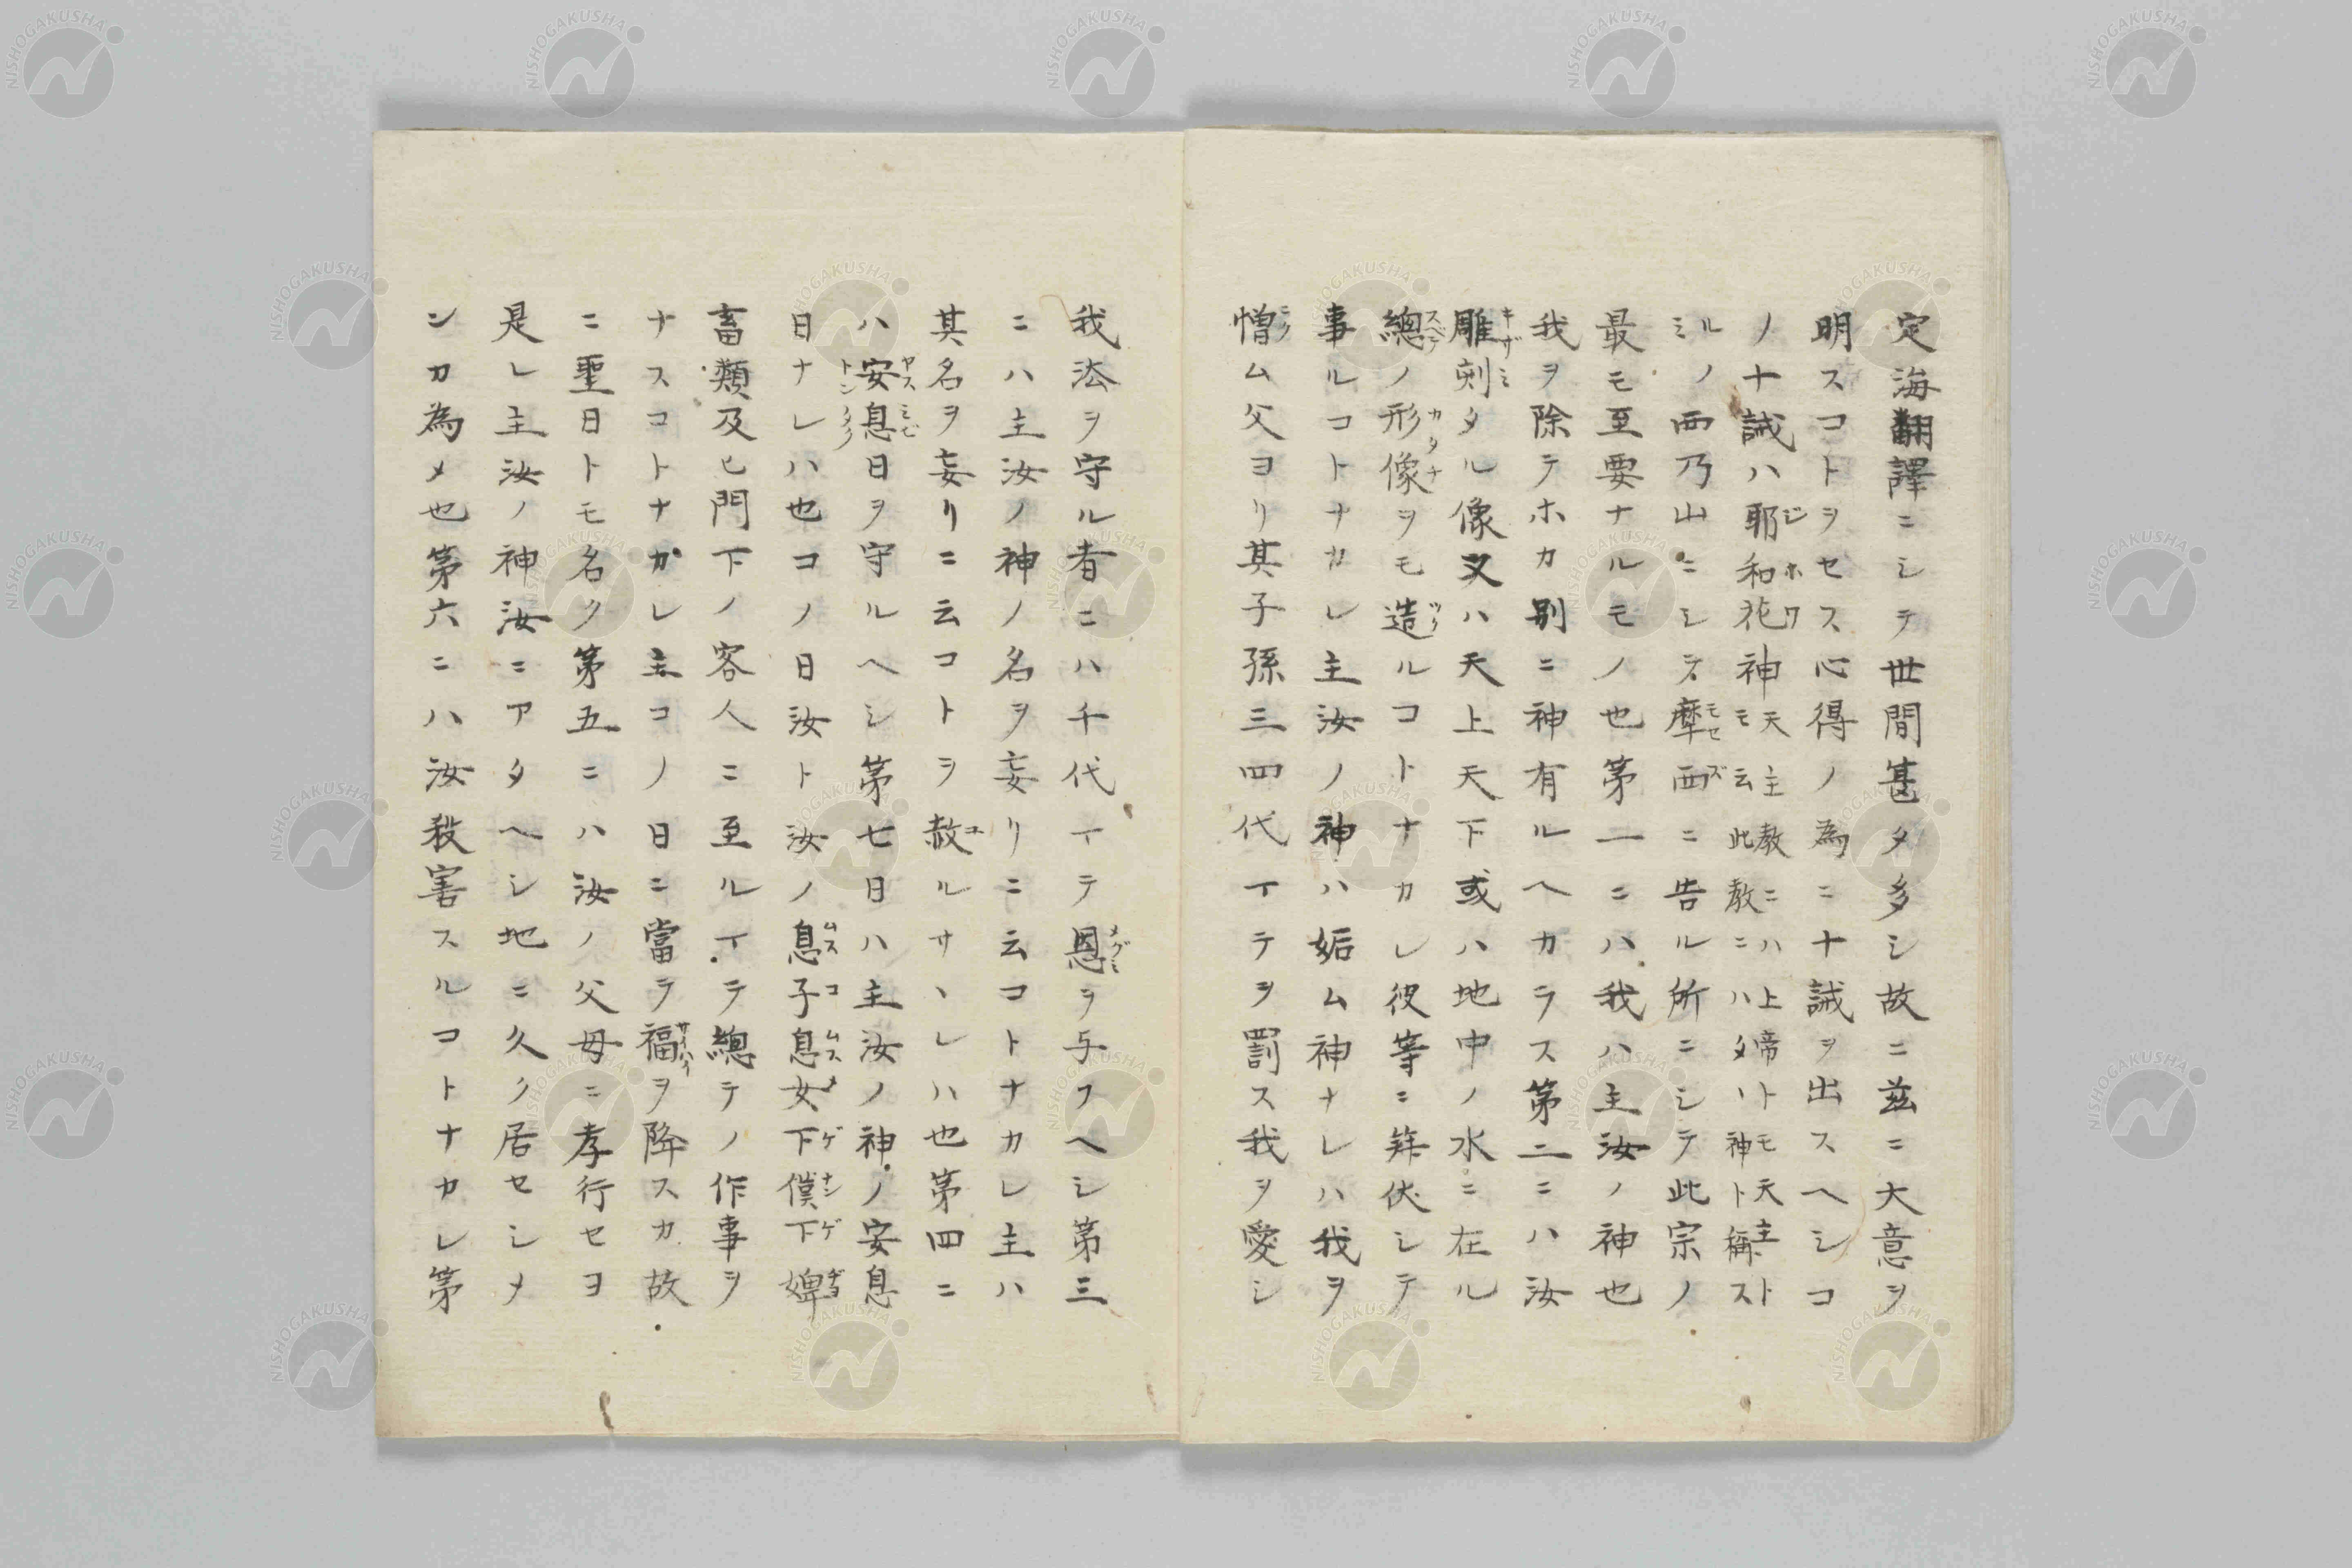 定海翻譯ニシテ世間甚タ多シ故ニ茲ニ大意ヲ
明スコトヲセス心得ノ為ニ十誡ヲ出スヘシコ
ノ十誡ハ耶和花神天主教ニハ上帝トモ天主ト
モ云此教ニハタヽ神ト稱ス
ジホワ
ミルノ西乃山ニシテ摩西ニ告ル所ニシテ此宗ノ
モセズ
最モ至要ナルモノ也第一ニハ我ハ主汝ノ神也
我ヲ除テホカ別ニ神有ルヘカラス第二ニハ汝
雕刻タル像又ハ天上天下或ハ地中ノ水ニ在ル
キザミ
總ノ形像ヲモ造ルコトナカレ彼等ニ拜伏シテ
スベテ
カタチ
ツク
事ルコトナカレ主汝ノ神ハ妬ム神ナレハ我ヲ
憎ム父ヨリ其子孫三四代イテヲ罰ス我ヲ愛シ
ニク
我法ヲ守ル者ニハ千代イテ恩ヲ与フヘシ第三
メグミ
ニハ主汝ノ神ノ名ヲ妄リニ云コトナカレ主ハ
其名ヲ妄リニ云コトヲ赦ルサヽレハ也第四ニ
ユ
ハ安息日ヲ守ルヘシ第七日ハ主汝ノ神ノ安息
ヤスミビ
トンタク
日ナレハ也コノ日汝ト汝ノ息子息女下僕下婢
ムスコ
ムスメ
ゲナン
ゲヂヨ
畜類及ヒ門下ノ客人ニ至ルイテ總テノ作事ヲ
ナスコトナガレ主コノ日ニ當テ福ヲ降スカ故
サイハイ
ニ聖日トモ名ク第五ニハ汝ノ父母ニ孝行セヨ
是レ主汝ノ神汝ニアタヘシ地ニ久ク居セシメ
ンカ為メ也第六ニハ汝殺害スルコトナカレ第
NISHOGAKUSHA